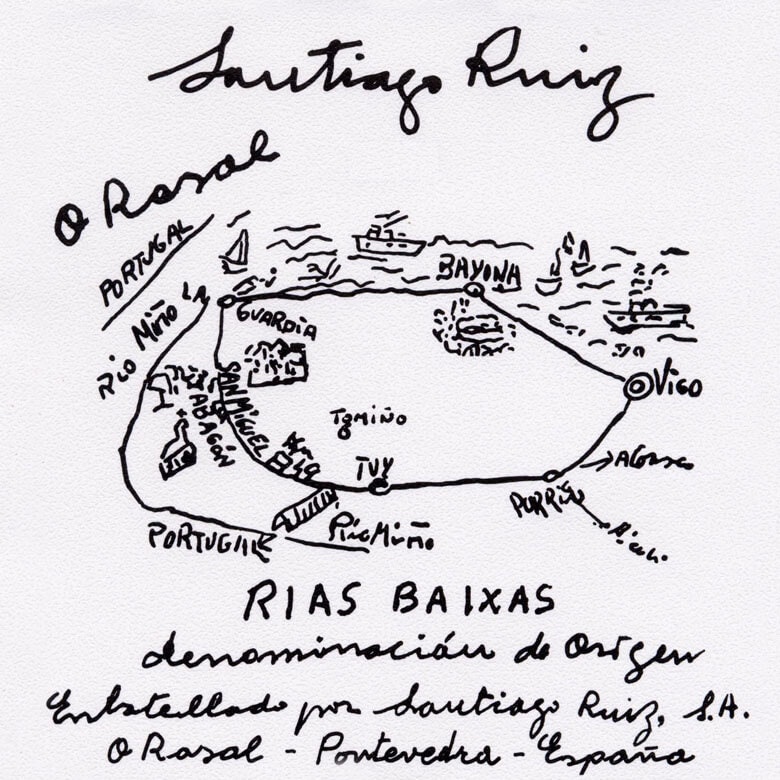 Santiago Ruiz
O Rosal
PORTUGAL
RIO MIÑO
LA
GUARDIA
BAYONA
VIGO
SAN MIGUEL
TABAGÓN
TOMIÑO
TUY
PORRIÑO
PORTUGAL
RIO MIÑO
RIAS BAIXAS
denominación de Origen
Embotellado por Santiago Ruiz, S.A.
O Rosal - Pontevedra - España